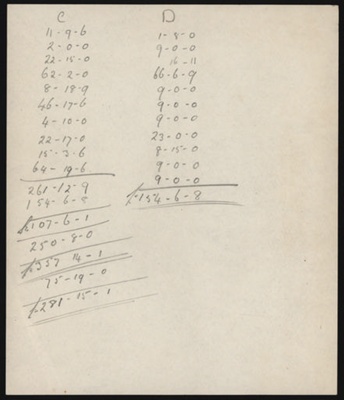 C
11-9-6
2-0-0
22-15-0
62-2-0
8-18-9
46-17-6
4-10-0
22-17-0
15-3-6
64-19-6
261-12-9
154-6-8
£107-6-1
250-8-0
£357 14-1
75-19-0
£281-15-1
D
1-8-0
9-0-0
16-11
66-6-9
9-0-0
9-0-0
9-0-0
23-0-0
8-15-0
9-0-0
9-0-0
£154-6-8